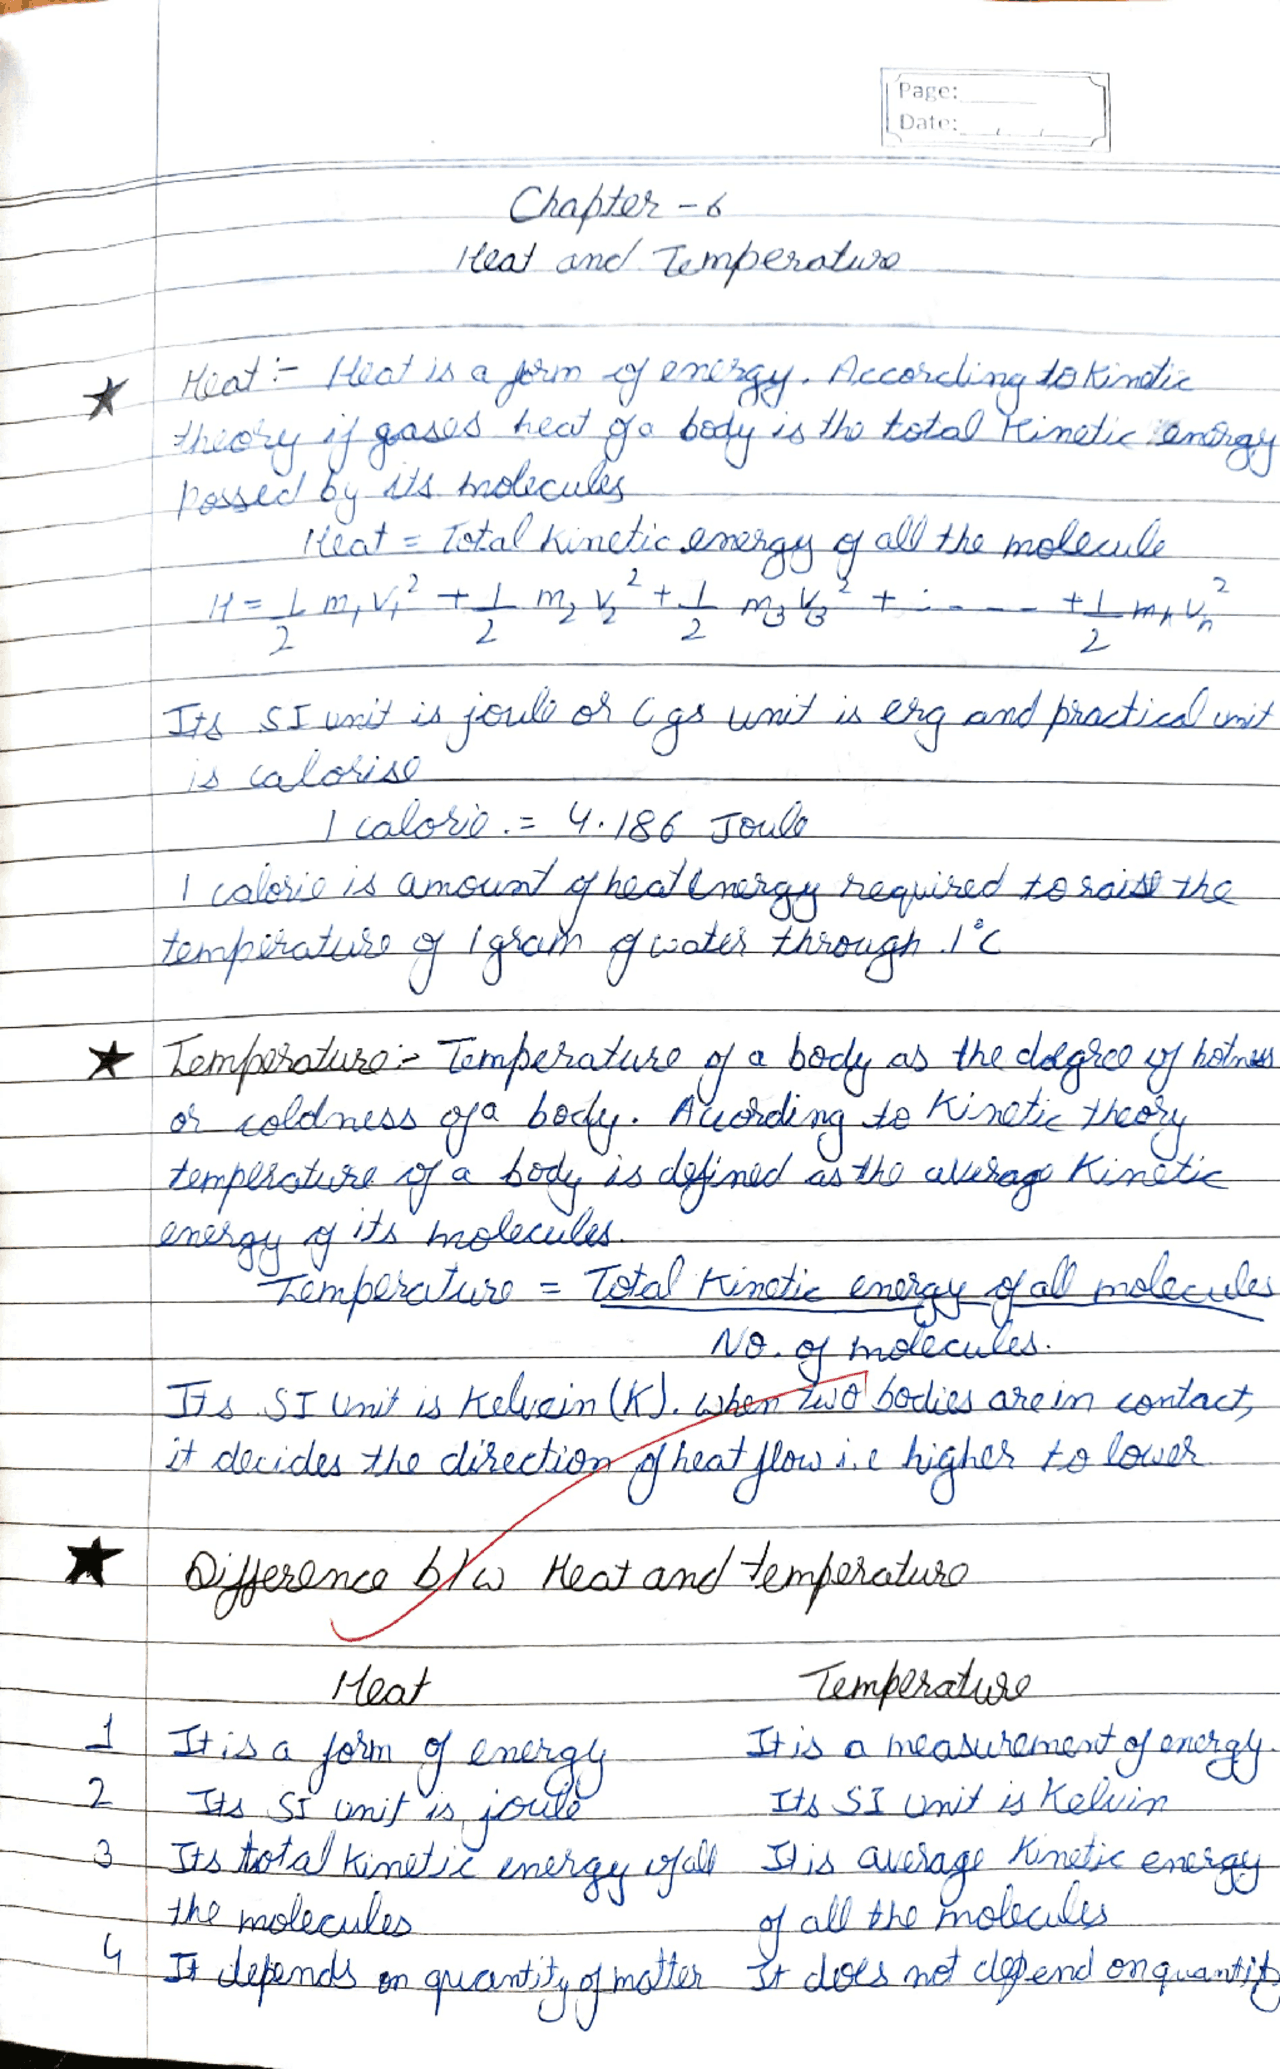 Page:
Date:
Chapter - 6
Heat and Temperature
Heat :- Heat is a form of energy. According to Kinetic
theory if gases heat of a body is the total Kinetic energy
possed by its molecules
Heat = Total Kinetic energy of all the molecule
H = 1/2 m₁ v₁² + 1/2 m₂ v₂² + 1/2 m₃ v₃² + - - - - + 1/2 mₙ vₙ²
Its SI unit is joule or Cgs unit is erg and practical unit
is calorise
1 calorie. = 4.186 Joule
1 calorie is amount of heat energy required to raise the
temperature of 1 gram of water through 1°C
Temperature :- Temperature of a body as the degree of hotness
or coldness of a body. According to Kinetic theory
temperature of a body is defined as the average Kinetic
energy of its molecules.
Temperature = Total Kinetic energy of all molecules
No. of molecules.
Its SI unit is Kelvein (K). when two bodies are in contact,
it decides the direction of heat flow i.e higher to lower
Difference b/w Heat and temperature
Heat Temperature
1 It is a form of energy It is a measurement of energy.
2 Its SI unit is joule Its SI unit is Kelvin
3 Its total Kinetic energy of all It is average Kinetic energy
the molecules of all the molecules
4 It depends on quantity of matter It does not depend on quantity